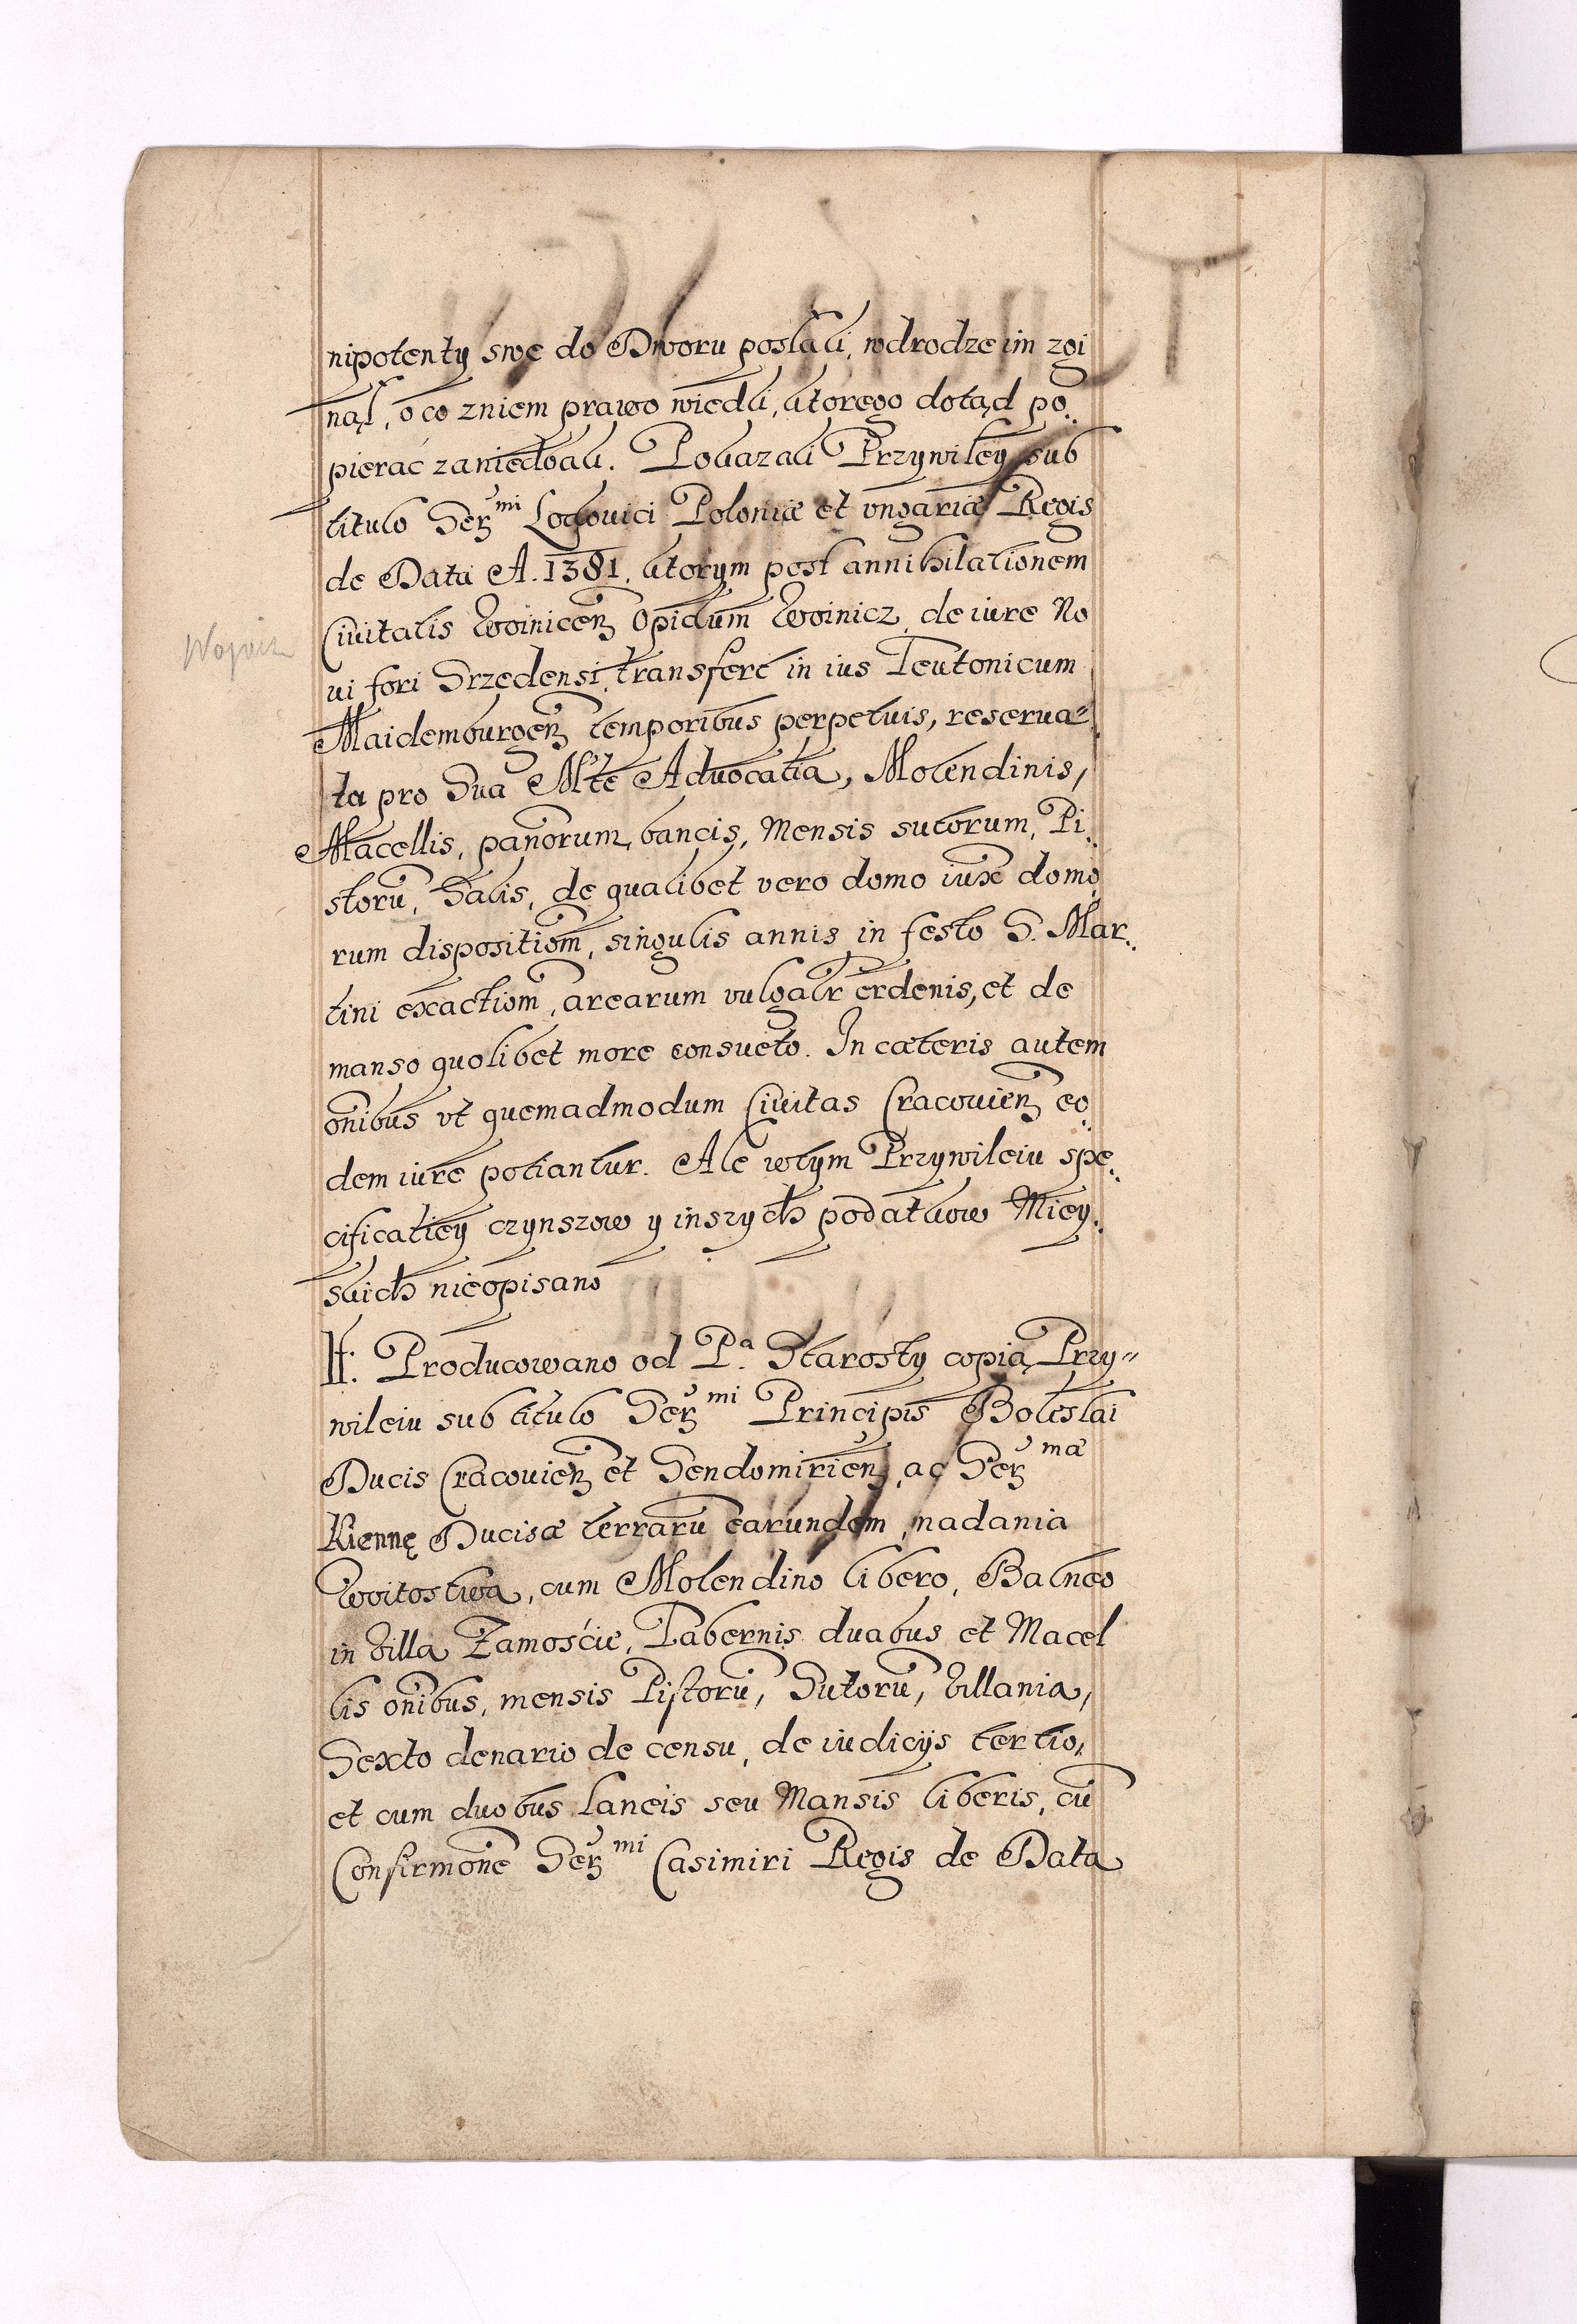 nipotenty swe do Dworu posłali, wdrodze im zgi
nął, o co zniem prawo wiedli, ktorego dotąd po
pierać zaniedbali. Pokazali Przywiley sub
titulo Serz^mi Lodouici Poloniæ et vngariæ Regis
de Data A. 1381. ktorym post annihilationem
Ciuitatis Woinicen̄ Opidum Woinicz, de iure No
Wojnicz
ui fori Srzedensi, transfert in ius Teutonicum
Maidemburgen̄ temporibus perpetuis, reserua=
ta pro Sua M'te Aduocatia, Molendinis,
Macellis, pan̄orum, bancis, Mensis sutorum, Pi
storū, Salis, de qualibet vero domo iux̄ domo
rum dispositiom̄, singulis annis in festo S. Mar
tini exactiom̄, arearum vulgalr̄ erdenis, et de
manso quolibet more consueto. In cæteris autem
om̄ibus vt quemadmodum Ciuitas Cracouien̄ eo
dem iure potiantur. Ale wtym Przywileiu spe
cificatiey czynszow y inszych podatkow Miey
skich nieopisano
It: Producowano od P^a. Starosty copią Przy=
wileiu sub titulo Serz^mi Principis Boleslai
Ducis Cracouien̄ et Sendomirien̄, ac Serz^mæ
Kiennę Ducisæ terrarū earundem, nadania
Woitostwa, cum Molendino libero, Balneo
in Villa Zamoście, Tabernis duabus et Macel
lis om̄ibus, mensis Pistorū, Sutorū, Villania,
Sexto denario de censu, de iudicijs tertio,
et cum duobus laneis seu Mansis liberis, cū
Confirmōne Serz^mi Casimiri Regis de Data